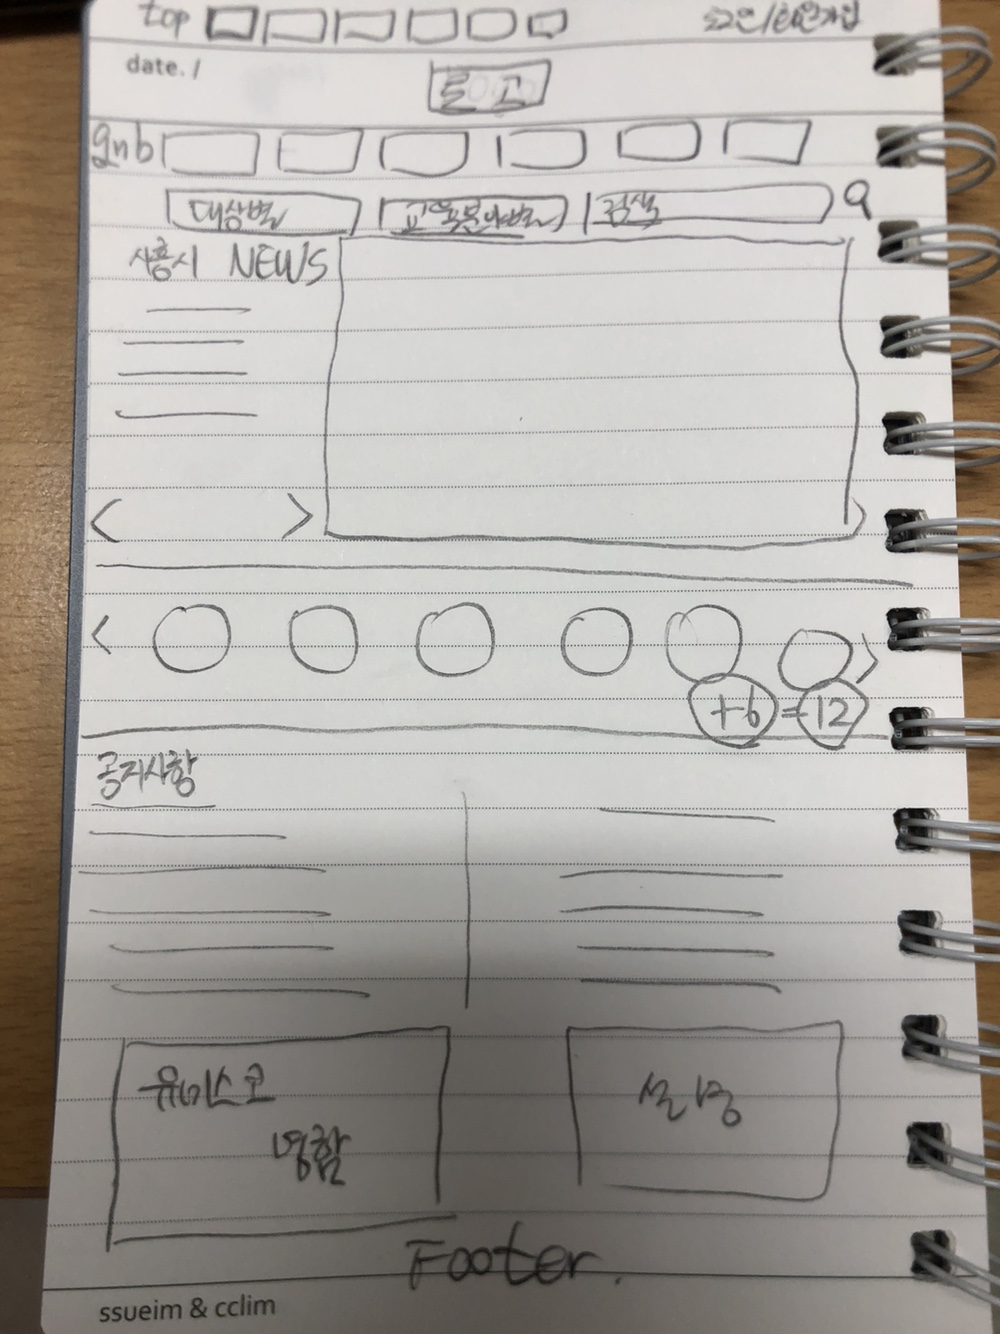 top 로그인/회원가입
date. /
로고
gnb
대상별 교육분야별 검색
시흥시 NEWS
+6 = 12
공지사항
유네스코 설명
명함
Footer.
ssueim & cclim